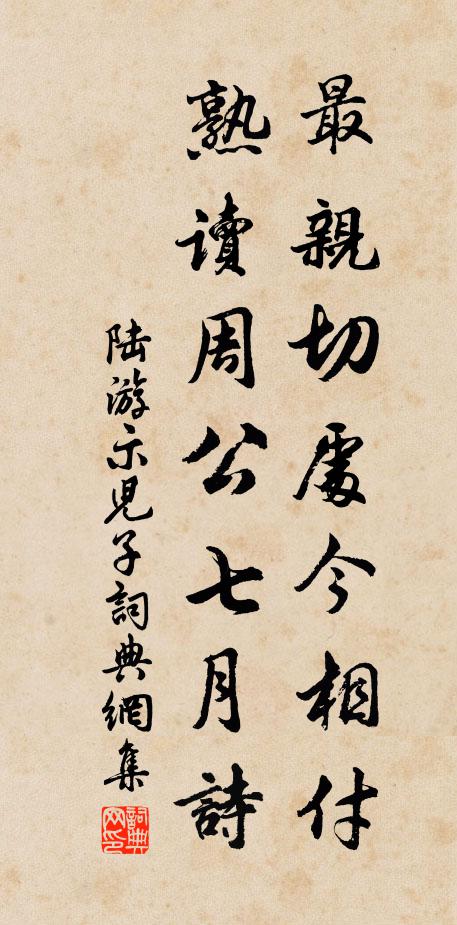 最親切處今相付
熟讀周公七月詩
陆游示児子詞典網集
詞典网印